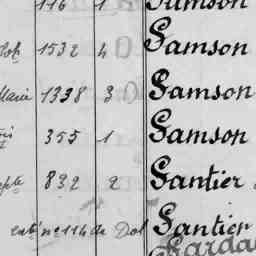 116 1 Samson
1532 4 Samson
Marie 1338 3 Samson
355 1 Samson
832 2 Santier
nº 114 de Dol Santier